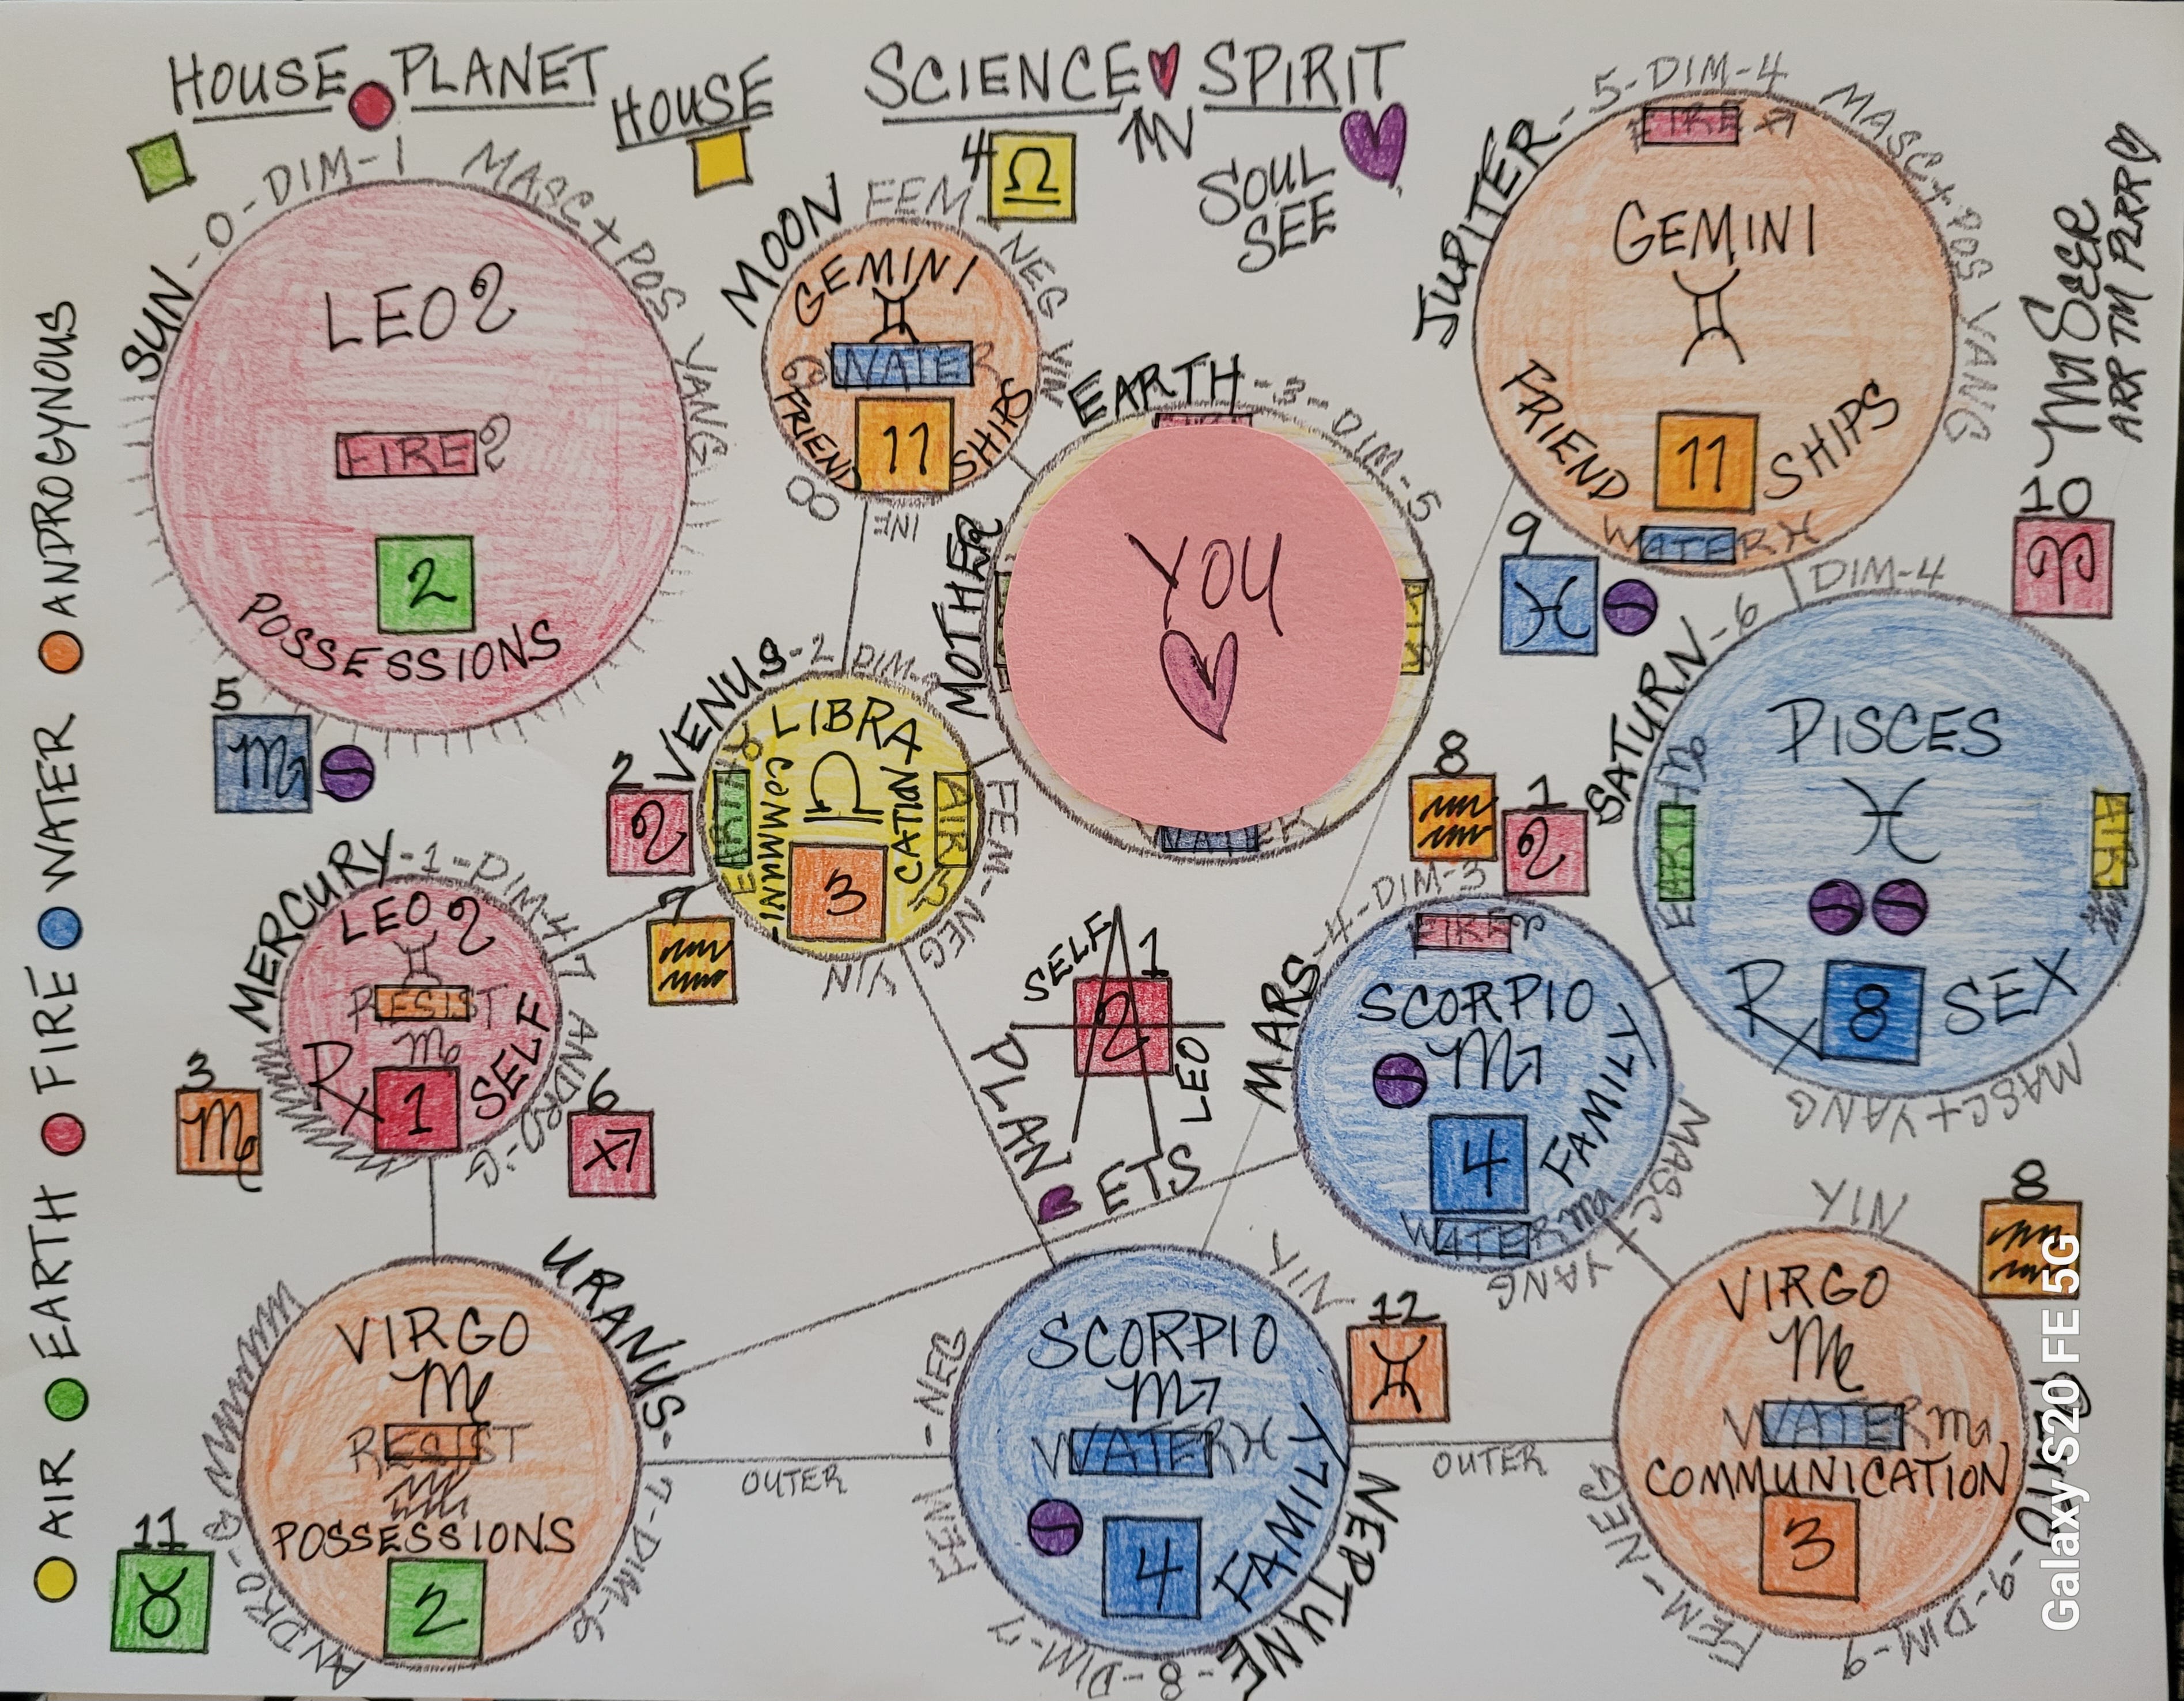 HOUSE PLANET
HOUSE
SCIENCE SPIRIT
IN
SOUL
SEE
SUN-0-DIM-1 MASC+POS YANG
LEO ♌
FIRE ♌
2
POSSESSIONS
5
♏
MOON
FEM-NEG YIN
4
♎
GEMINI
♊
WATER
11
FRIEND SHIPS
8
INE
EARTH-3-DIM-5
MOTHER
YOU
WATER
JUPITER-5-DIM-4 MASC+POS YANG
FIRE ♐
GEMINI
♊
FRIEND SHIPS
11
WATER ♓
9
♓
10
♈
SEER
ARR TM
VENUS-2 DIM-
LIBRA
♎
COMMUNI-
CATION
EARTH ♉
AIR ♎
3
FEM-NEG
YIN
2
♌
7
♒
MERCURY-1-DIM-4
LEO ♌
♊
RESIST
♍
Rx
1
SELF
ANDRO-G
3
♍
6
♐
SELF 1
♌
LEO
PLAN ETS
SATURN-6 DIM-4
PISCES
♓
EARTH ♑
AIR
♒
Rx
8
SEX
MASC+YANG
8
♒
1
♌
MARS-4-DIM-3
FIRE ♈
SCORPIO
♏
4
FAMILY
WATER ♏
MASC+
YANG
URANUS-7-DIM-6
VIRGO
♍
RESIST
♒
POSSESSIONS
2
ANDRO-G
11
♉
OUTER
NEPTUNE-8-DIM-7
FEM-NEG
YIN
SCORPIO
♏
WATER ♓
4
FAMILY
12
♊
OUTER
YIN
VIRGO
♍
WATER ♏
COMMUNICATION
3
FEM-NEG
9-DIM-9
8
♒
AIR EARTH FIRE WATER ANDROGYNOUS
Galaxy S20 FE 5G